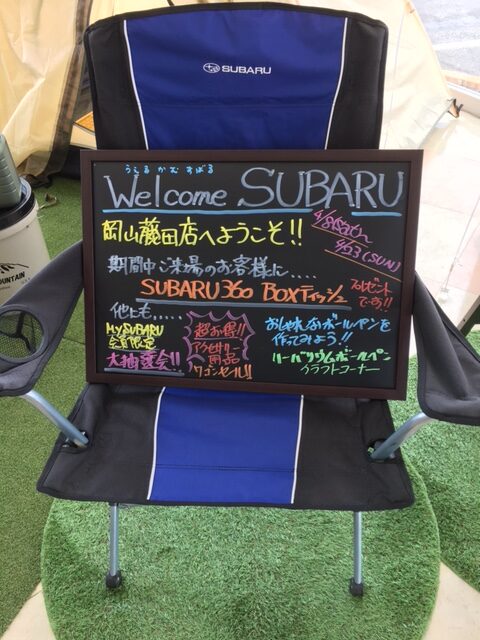 SUBARU
うぇるかむすばる
Welcome SUBARU
岡山藤田店へようこそ!!
(SAT)~
4/23(SUN)
期間中ご来場のお客様に....
SUBARU360 BOXティッシュ
プレゼント
です!!
他にも.....
My SUBARU
会員限定
大抽選会!!
超お得!!
アクセサリー
用品
ワゴンセール!!
おしゃれなボールペンを
作ってみよう!!
ハーバリウムボールペン
クラフトコーナー
MOUNTAIN